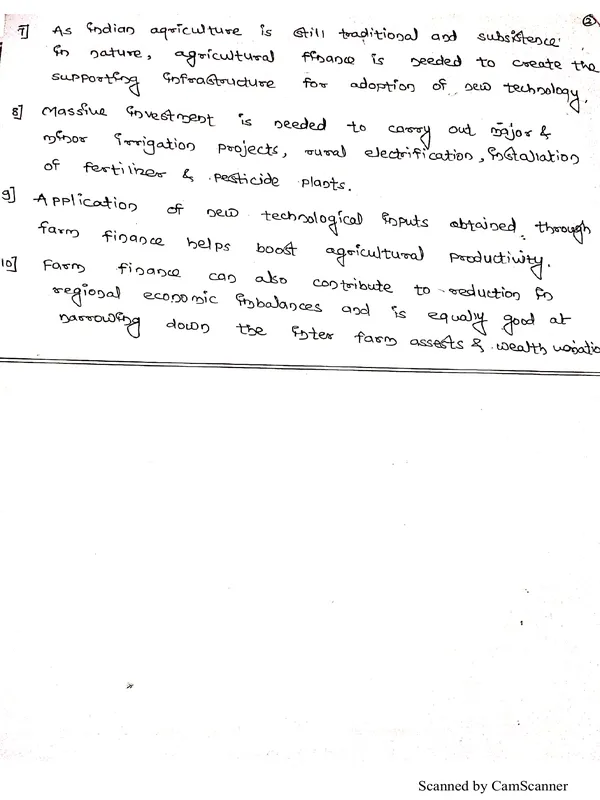 ②
7] As Indian agriculture is still traditional and subsistence
in nature, agricultural finance is needed to create the
supporting infrastructure for adoption of new technology.
8] Massive investment is needed to carry out major &
minor irrigation projects, rural electrification, installation
of fertilizer & pesticide plants.
9] Application of new technological inputs obtained through
farm finance helps boost agricultural productivity.
10] Farm finance can also contribute to reduction in
regional economic inbalances and is equally good at
narrowing down the inter farm assests & wealth variatio
Scanned by CamScanner